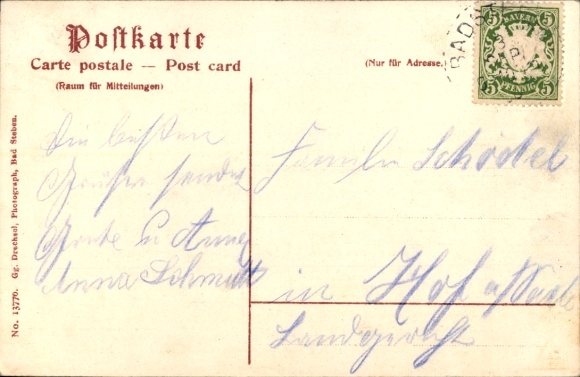 Postkarte
Carte postale — Post card
(Raum für Mitteilungen)
(Nur für Adresse.)
BAYERN
5 5
5 PFENNIG 5
BAD
Die besten
Grüße sendet
Anna
Anna Schmidt
Familie Schödel
in Hof a/Saale
Landgericht
No. 13770. Gg. Drechsel, Photograph, Bad Steben.